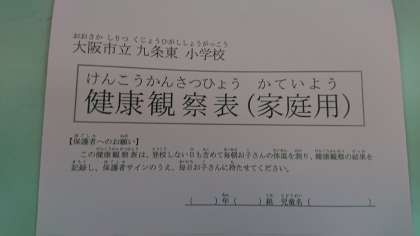 おおさか しりつ くじょうひがししょうがっこう
大阪市立 九条東 小学校
けんこうかんさつひょう かていよう
健康観察表(家庭用)
【保護者へのお願い】
この健康観察表は、登校しない日も含めて毎朝お子さんの体温を測り、健康観察の結果を
記録し、保護者サインのうえ、毎日お子さんに持たせてください。
( )年( )組 児童名( )